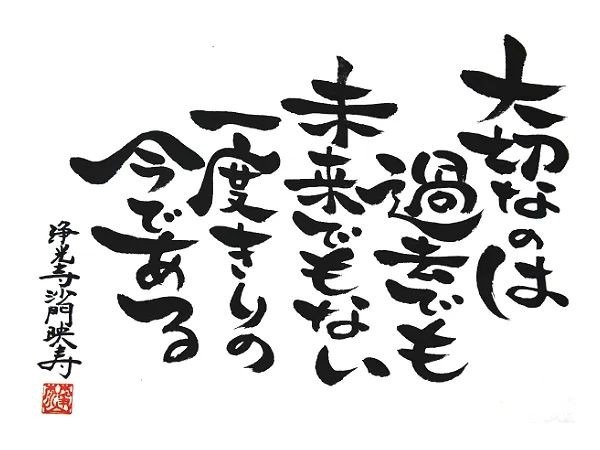 大切なのは
過去でも
未来でもない
一度きりの
今である
浄光寺沙門映寿